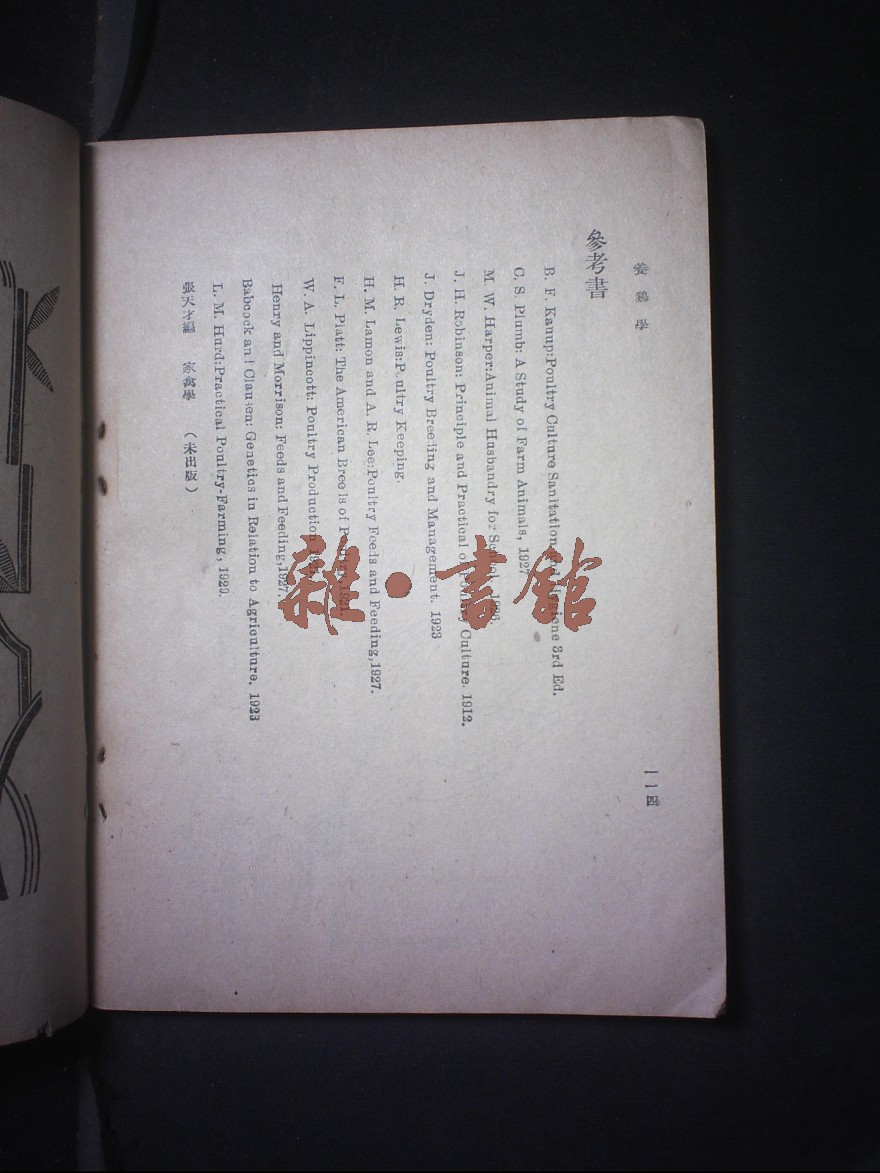 養鷄學
一一四
參考書
B. F. Kauup:Poultry Culture Sanitation and Hygiene 3rd Ed.
C. S. Plumb: A Study of Farm Animals, 1927
M. W. Harper:Animal Husbandry for School,
J. H. Robinson: Principle and Practical of Poultry Culture. 1912.
J. Dryden: Poultry Breeding and Management. 1923
H. R. Lewis:Poultry Keeping.
H. M. Lamon and A. R. Lee:Poultry Feeds and Feeding,1927.
F. L. Platt: The American Breeds of Poultry,1921.
W. A. Lippincott: Poultry Production
Henry and Morrison: Feeds and Feeding,1927.
Babcock and Clausen: Genetics in Relation to Agriculture. 1923
L. M. Hurd:Practical Poultry-Farming,
張天才編 家禽學 (未出版)
雜·書館